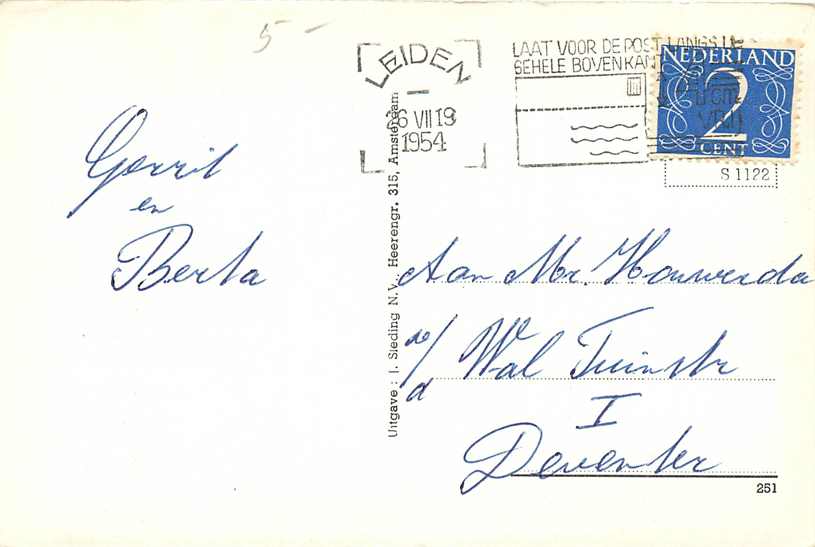 5-
LEIDEN
6 VII 19
1954
LAAT VOOR DE POST LANGS
GEHELE BOVENKANT
NEDERLAND
2
CENT
S 1122
Gerrit
en
Berta
Uitgave : I. Sleding N.V., Heerengr. 315, Amsterdam
Aan Mr. Houwerda
Wal Tuinstr
I
Deventer
251